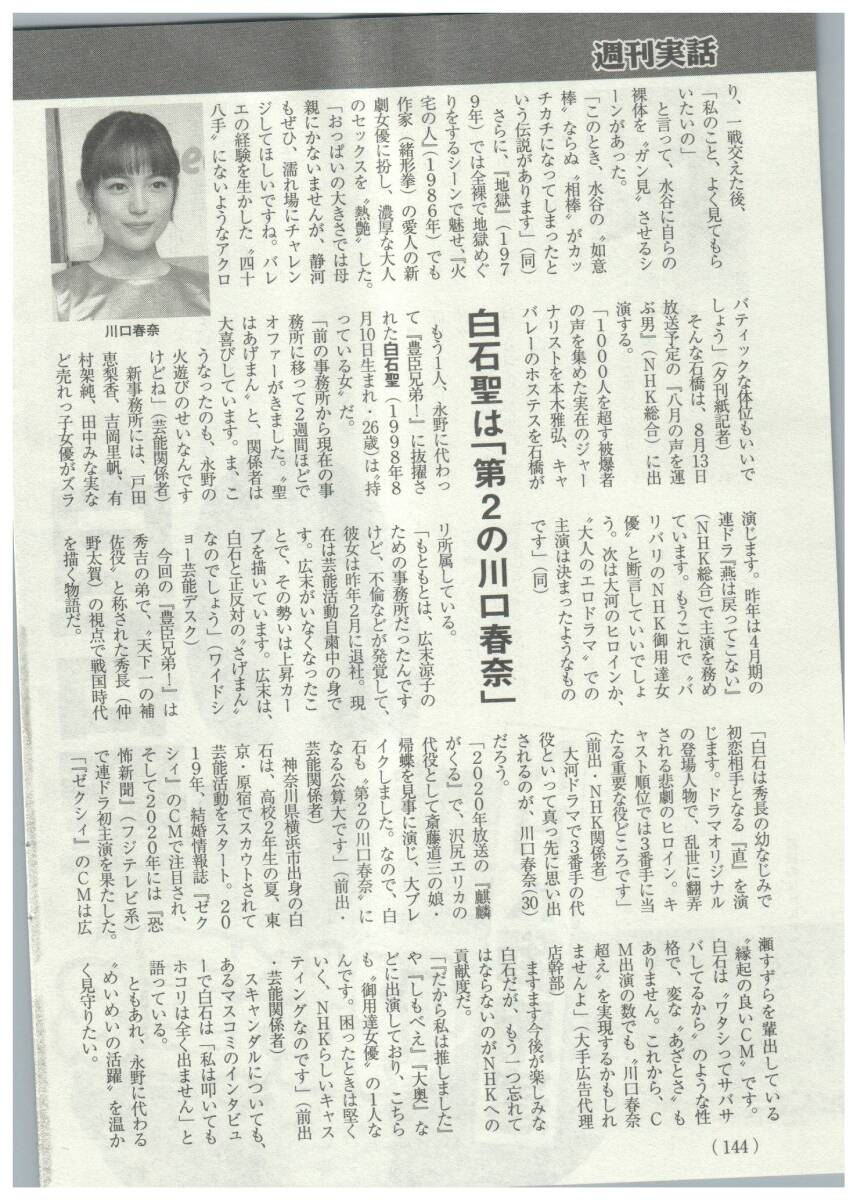 週刊実話
り、一戦交えた後、
「私のこと、よく見てもら
いたいの」
と言って、水谷に自らの
裸体を〝ガン見〟させるシ
ーンがあった。
「このとき、水谷の〝如意
棒〟ならぬ〝相棒〟がカッ
チカチになってしまったと
いう伝説があります」(同)
さらに、『地獄』(197
9年)では全裸で地獄めぐ
りをするシーンで魅せ、『火
宅の人』(1986年)でも
作家(緒形拳)の愛人の新
劇女優に扮し、濃厚な大人
のセックスを〝熱艶〟した。
「おっぱいの大きさでは母
親にかないませんが、静河
もぜひ、濡れ場にチャレン
ジしてほしいですね。バレ
エの経験を生かした〝四十
八手〟にないようなアクロ
川口春奈
バティックな体位もいいで
しょう」(夕刊紙記者)
そんな石橋は、8月13日
放送予定の『八月の声を運
ぶ男』(NHK総合)に出
演する。
「1000人を超す被爆者
の声を集めた実在のジャー
ナリストを本木雅弘、キャ
バレーのホステスを石橋が
演じます。昨年は4月期の
連ドラ『燕は戻ってこない』
(NHK総合)で主演を務め
ています。もうこれで〝バ
リバリのNHK御用達女
優〟と断言していいでしょ
う。次は大河のヒロインか、
〝大人のエロドラマ〟での
主演は決まったようなもの
です」(同)
白石聖は「第2の川口春奈」
もう1人、永野に代わっ
て『豊臣兄弟!』に抜擢さ
れた白石聖(1998年8
月10日生まれ・26歳)は〝持
っている女〟だ。
「前の事務所から現在の事
務所に移って2週間ほどで
オファーがきました。〝聖
はあげまん〟と、関係者は
大喜びしています。ま、こ
うなったのも、永野の
火遊びのせいなんです
けどね」(芸能関係者)
新事務所には、戸田
恵梨香、吉岡里帆、有
村架純、田中みな実な
ど売れっ子女優がズラ
リ所属している。
「もともとは、広末涼子の
ための事務所だったんです
けど、不倫などが発覚して、
彼女は昨年2月に退社。現
在は芸能活動自粛中の身で
す。広末がいなくなったこ
とで、その勢いは上昇カー
ブを描いています。広末は、
白石と正反対の〝さげまん〟
なのでしょう」(ワイドシ
ョー芸能デスク)
今回の『豊臣兄弟!』は
秀吉の弟で、〝天下一の補
佐役〟と称された秀長(仲
野太賀)の視点で戦国時代
を描く物語だ。
「白石は秀長の幼なじみで
初恋相手となる『直』を演
じます。ドラマオリジナル
の登場人物で、乱世に翻弄
される悲劇のヒロイン。キ
ャスト順位では3番手に当
たる重要な役どころです」
(前出・NHK関係者)
大河ドラマで3番手の代
役といって真っ先に思い出
されるのが、川口春奈(30)
だろう。
「2020年放送の『麒麟
がくる』で、沢尻エリカの
代役として斎藤道三の娘・
帰蝶を見事に演じ、大ブレ
イクしました。なので、白
石も〝第2の川口春奈〟に
なる公算大です」(前出・
芸能関係者)
神奈川県横浜市出身の白
石は、高校2年生の夏、東
京・原宿でスカウトされて
芸能活動をスタート。20
19年、結婚情報誌『ゼク
シィ』のCMで注目され、
そして2020年には『恐
怖新聞』(フジテレビ系)
で連ドラ初主演を果たした。
「『ゼクシィ』のCMは広
瀬すずらを輩出している
〝縁起の良いCM〟です。
白石は〝ワタシってサバサ
バしてるから〟のような性
格で、変な〝あざとさ〟も
ありません。これから、C
M出演の数でも〝川口春奈
超え〟を実現するかもしれ
ませんよ」(大手広告代理
店幹部)
ますます今後が楽しみな
白石だが、もう一つ忘れて
はならないのがNHKへの
貢献度だ。
「『だから私は推しました』
や『しもべえ』『大奥』な
どに出演しており、こちら
も〝御用達女優〟の1人な
んです。困ったときは堅く
いく、NHKらしいキャス
ティングなのです」(前出
・芸能関係者)
スキャンダルについても、
あるマスコミのインタビュ
ーで白石は「私は叩いても
ホコリは全く出ません」と
語っている。
ともあれ、永野に代わる
〝めいめいの活躍〟を温か
く見守りたい。
(144)